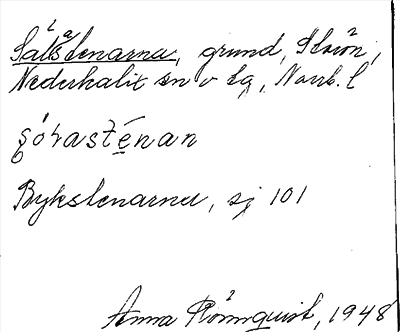 Salsstenarna, grund, Storön,
Nederkalix sn o tg, Norrb. l
sórastēnan
Bykstenarna, sj 101
Anna Rönnquist, 1948